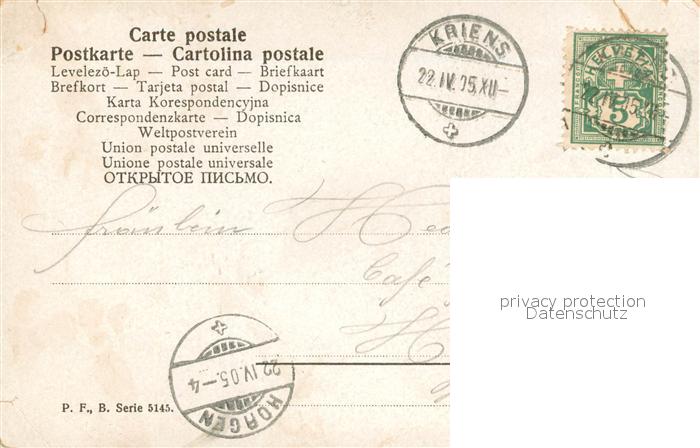 Carte postale
Postkarte — Cartolina postale
Levelező-Lap — Post card — Briefkaart
Brefkort — Tarjeta postal — Dopisnice
Karta Korespondencyjna
Correspondenzkarte — Dopisnica
Weltpostverein
Union postale universelle
Unione postale universale
ОТКРЫТОЕ ПИСЬМО.
KRIENS
22.IV.05.XII–
HELVETIA
5
Fräulein
Café
privacy protection
Datenschutz
22.IV.05.–4
HORGEN
P. F., B. Serie 5145.